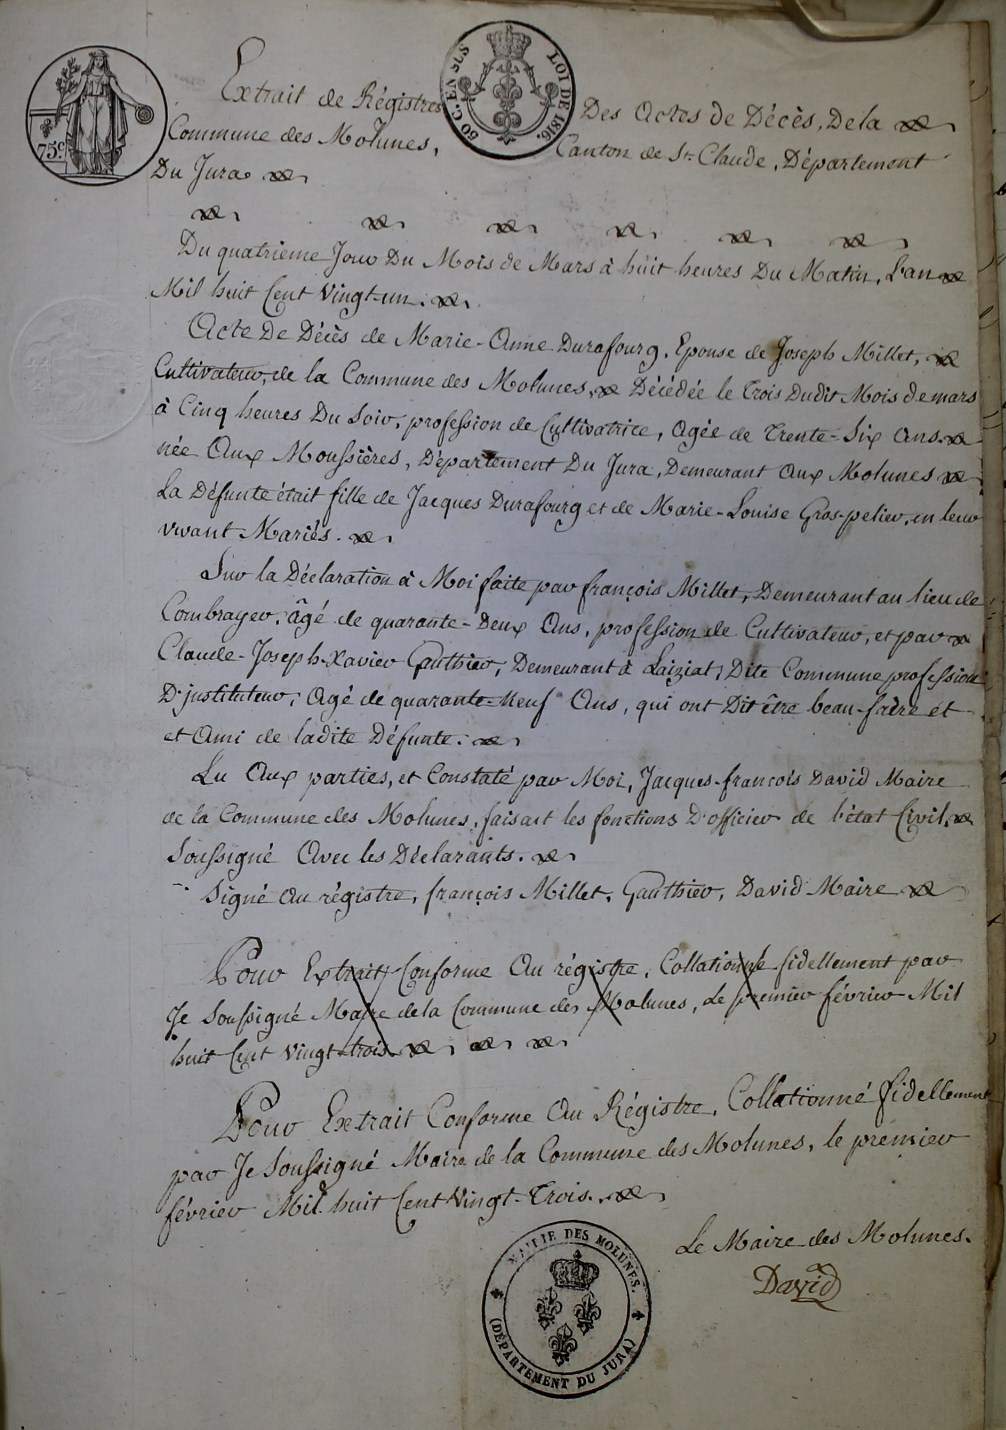 75c
50 C. EN SUS
LOI DE 1816.
Extrait de Régistres Des Actes de Décès, De la
Commune des Molunes, Canton de St. Claude, Département
Du Jura
Du quatrieme Jour Du Mois de Mars à huit heures Du Matin, L'an
Mil huit Cent Vingt-un.
Acte De Décès de Marie-Anne Durafourg, Epouse de Joseph Millet,
Cultivateur, de la Commune des Molunes, Décédée le Trois Dudit Mois de mars
à Cinq heures Du Soir, profession de Cultivatrice, Agée de Trente-Six Ans.
née Aux Moussières, Département Du Jura, Demeurant Aux Molunes
La Défunte était fille de Jacques Durafourg et de Marie-Louise Gros-pelier, en leur
vivant Mariés.
Sur la Déclaration à Moi faite par françois Millet, Demeurant au lieu de
Combrayer, âgé de quarante-Deux Ans, profession de Cultivateur, et par
Claude-Joseph-Xavier Gauthier, Demeurant à Laiziat, Dite Commune profession
D'instituteur, Agé de quarante-Neuf Ans, qui ont Dit être beau-frère et
et Ami de ladite Défunte.
Lu Aux parties, et Constaté par Moi, Jacques-françois David Maire
de la Commune des Molunes, faisant les fonctions D'officier de l'état Civil,
Soussigné Avec les Déclarants.
Signé Au régistre, françois Millet, Gauthier, David Maire
Pour Extrait Conforme Au régistre, Collationné fidellement par
Je Soussigné Maire de la Commune des Molunes, Le premier février Mil
huit Cent Vingt-trois
Pour Extrait Conforme Au Régistre, Collationné fidellement
par Je Soussigné Maire de la Commune des Molunes, le premier
février Mil huit Cent Vingt-Trois.
Le Maire des Molunes.
David
MAIRIE DES MOLUNES.
(DÉPARTEMENT DU JURA)